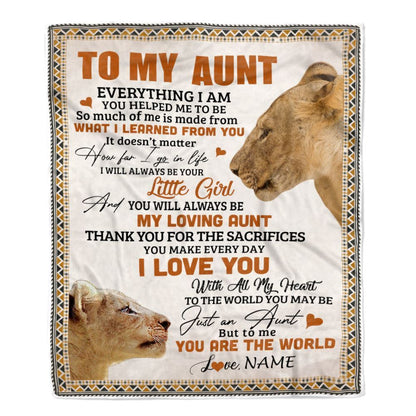 TO MY AUNT
EVERYTHING I AM
YOU HELPED ME TO BE
So much of me is made from
WHAT I LEARNED FROM YOU
It doesn't matter
How far I go in life
I WILL ALWAYS BE YOUR
Little Girl
And YOU WILL ALWAYS BE
MY LOVING AUNT
THANK YOU FOR THE SACRIFICES
YOU MAKE EVERY DAY
I LOVE YOU
With All My Heart
TO THE WORLD YOU MAY BE
Just an Aunt
But to me
YOU ARE THE WORLD
Love, NAME